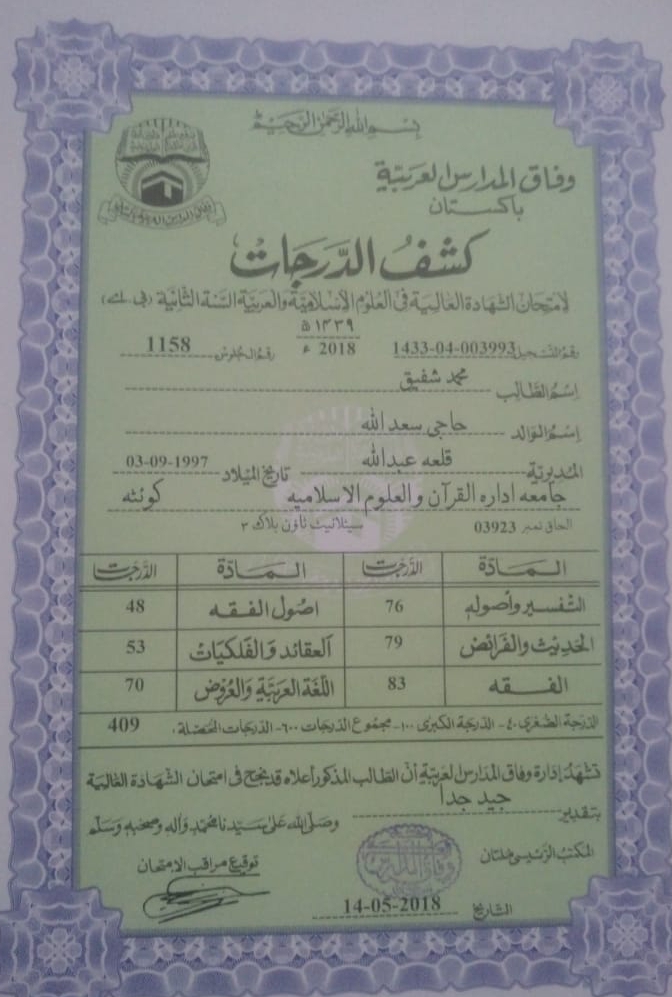 بسم الله الرحمن الرحيم
وفاق المدارس العربية
باكستان
كشف الدرجات
لامتحان الشهادة العالية في العلوم الإسلامية والعربية السنة الثانية (بی۔اے)
١٤٣٩ ھ
رقم التسجيل 1433-04-003993 2018 ء رقم الجلوس 1158
اسم الطالب محمد شفيق
اسم الوالد حاجی سعد الله
المديرية قلعه عبدالله تاريخ الميلاد 03-09-1997
جامعه اداره القرآن والعلوم الاسلاميه کوئٹه
الحاق نمبر 03923 سیٹلائیٹ ٹاؤن بلاک ۳
المادة الدرجت المادة الدرجت
التفسير وأصوله 76 اصول الفقه 48
الحديث والفرائض 79 العقائد والفلكيات 53
الفقه 83 اللغة العربية والعروض 70
الدرجة الصغرى ٤٠- الدرجة الكبرى ١٠٠- مجموع الدرجات ٦٠٠- الدرجات المحصلة 409
تشهد إدارة وفاق المدارس العربية أن الطالب المذكور أعلاه قد نجح في امتحان الشهادة العالية
بتقدير جيد جدا
وصلى الله على سيدنا محمد وآله وصحبه وسلم
المكتب الرئيسي ملتان
توقيع مراقب الامتحان
التاريخ 14-05-2018